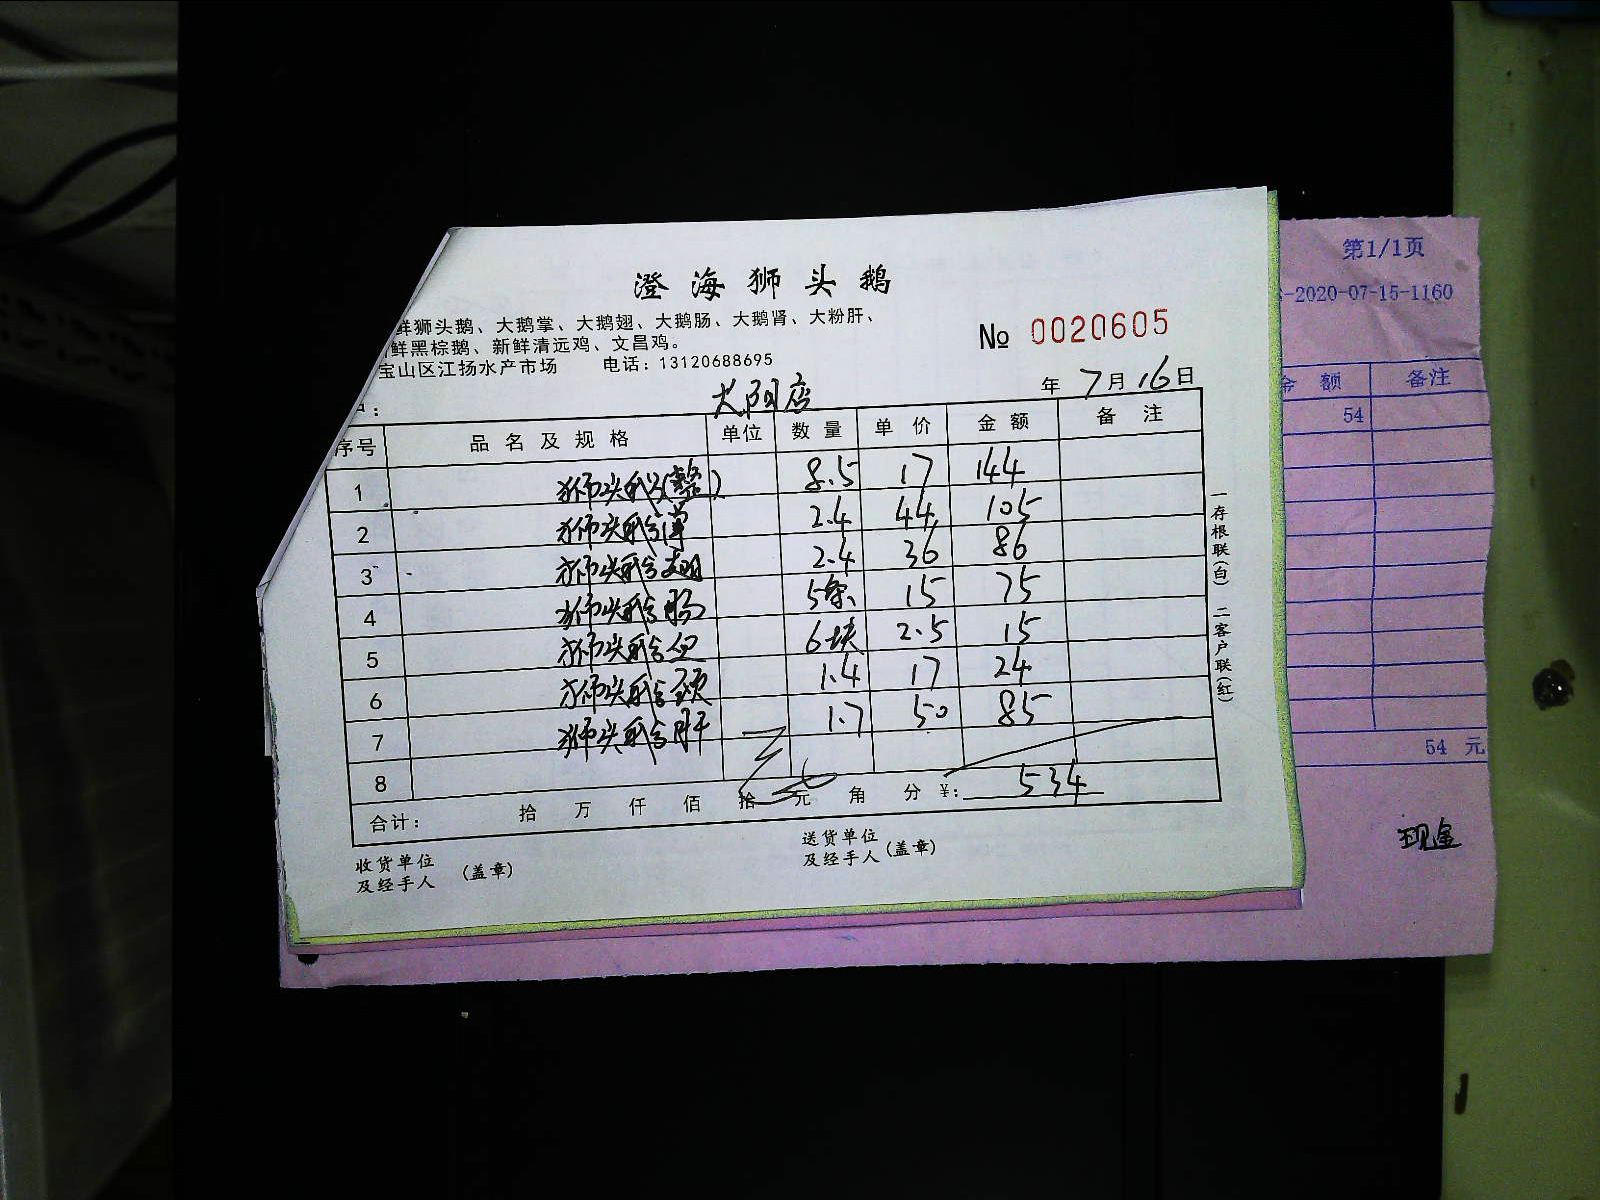 澄海狮头鹅
鲜狮头鹅、大鹅掌、大鹅翅、大鹅肠、大鹅肾、大粉肝、
鲜黑棕鹅、新鲜清远鸡、文昌鸡。
宝山区江扬水产市场 电话：13120688695
№ 0020605
大阳店
年 7月16日
序号 品名及规格 单位 数量 单价 金额 备注
1 狮头鹅(整) 8.5 17 144
2 狮头鹅掌 2.4 44 105
3 狮头鹅翅 2.4 36 86
4 狮头鹅肠 5条 15 75
5 狮头鹅血 6块 2.5 15
6 狮头鹅颈 1.4 17 24
7 狮头鹅肝 1.7 50 85
8
合计： 拾 万 仟 佰 拾 元 角 分 ￥：534
收货单位
及经手人 (盖章)
送货单位
及经手人 (盖章)
一存根联(白) 二客户联(红)
第1/1页
-2020-07-15-1160
金 额 备注
54
54 元
现金